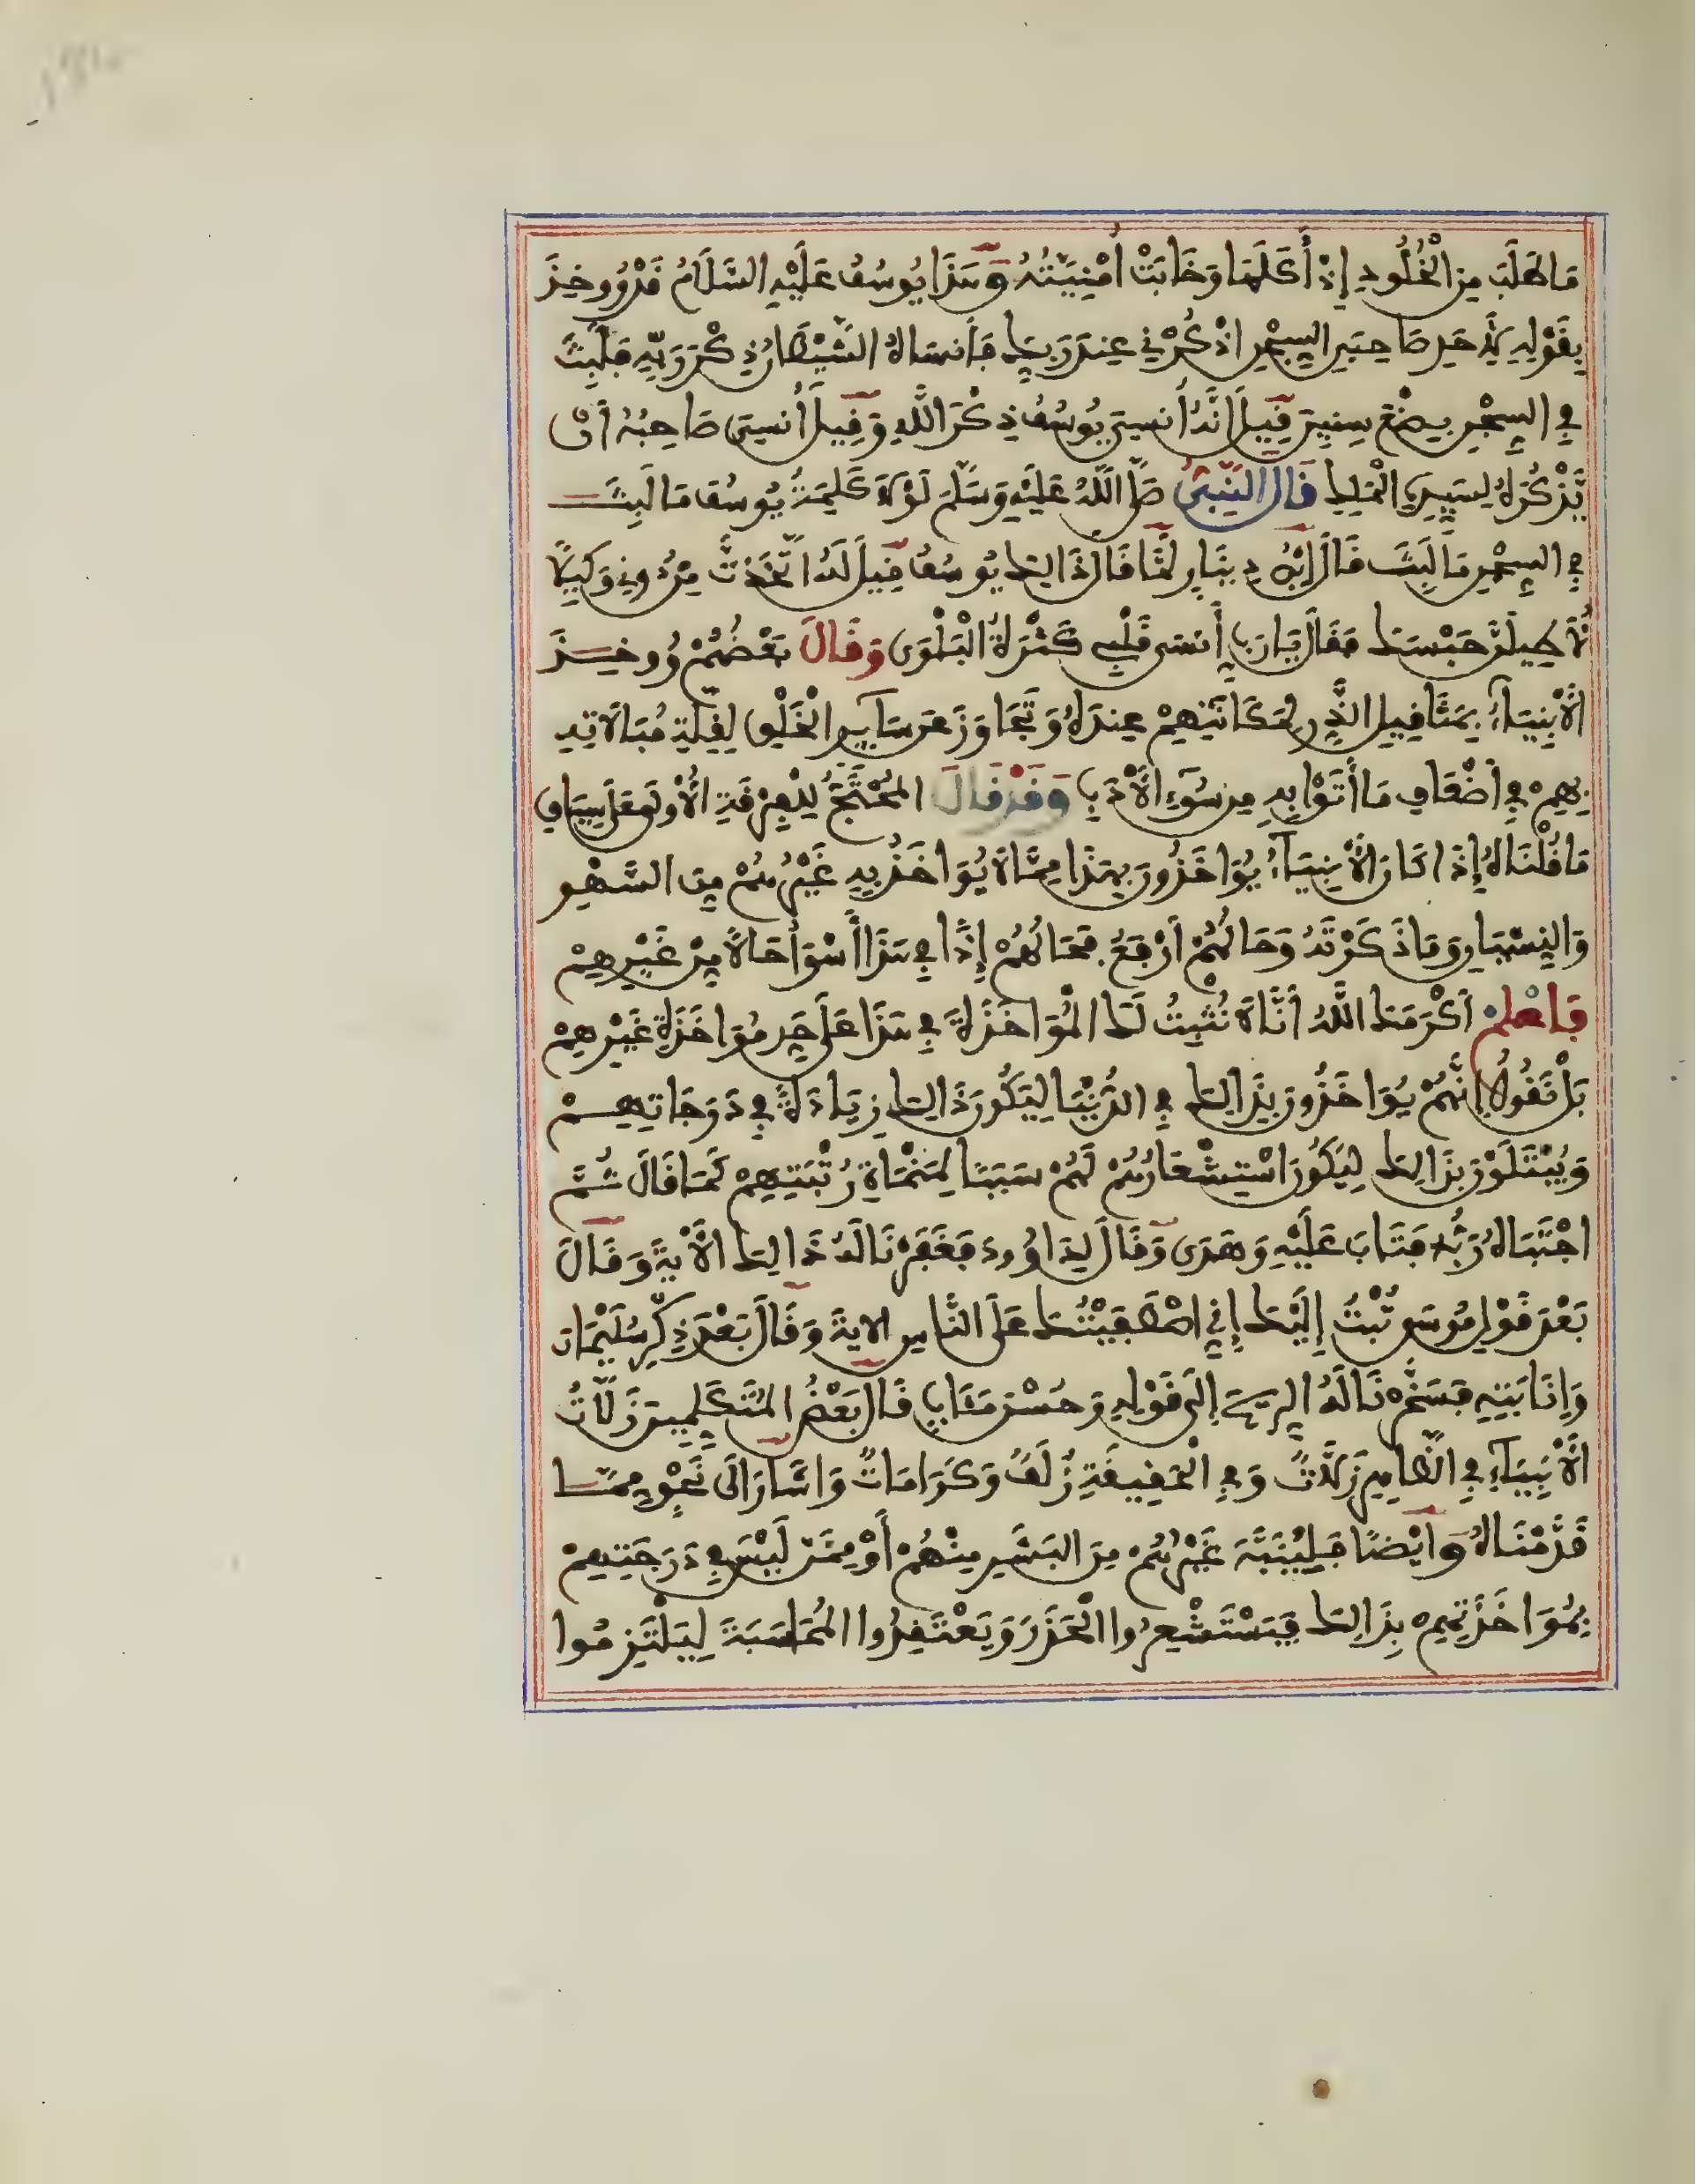 مَا طَلَبَ مِنَ الْخُلُودِ إِذْ أَكَلَهَا وَخَابَتْ أُمْنِيَّتُهُ وَهَذَا يُوسُفُ عَلَيْهِ السَّلَامُ قَدْ وُوخِذَ
بِقَوْلِهِ لِأَحَدِ صَاحِبَيِ السِّجْنِ اذْكُرْنِي عِندَ رَبِّكَ فَأَنسَاهُ الشَّيْطَانُ ذِكْرَ رَبِّهِ فَلَبِثَ
فِي السِّجْنِ بِضْعَ سِنِينَ قِيلَ انَّهُ أُنسِيَ يُوسُفُ ذِكْرَ اللَّهِ وَقِيلَ أُنسِيَ صَاحِبُهُ أَنْ
يَّذْكُرَهُ لِسَيِّدِهِ الْمَلِكِ قَالَ النَّبِيُّ صَلَّى اللَّهُ عَلَيْهِ وَسَلَّمَ لَوْلَا كَلِمَةُ يُوسُفَ مَا لَبِثَ
فِي السِّجْنِ مَا لَبِثَ قَالَ ابْنُ دِينَارٍ لَمَّا قَالَ ذَالِكَ يُوسُفُ قِيلَ لَهُ اتَّخَذْتَ مِن دُونِي وَكِيلًا
لَأُطِيلَنَّ حَبْسَكَ فَقَالَ يَا رَبِّ أَنسَى قَلْبِي كَثْرَةُ الْبَلْوَى وَقَالَ بَعْضُهُمْ وُوخِذَ
الْأَنبِيَاءُ بِمَثَاقِيلِ الذَّرِّ لِمَكَانَتِهِمْ عِندَهُ وَتَجَاوَزَ عَن سَايِرِ الْخَلْقِ لِقِلَّةِ مُبَالَاتِهِ
بِهِمْ فِي أَضْعَافِ مَا أَتَوْا بِهِ مِن سُوءِ الْأَدَبِ وَقَدْ قَالَ الْمُحْتَجُّ لِلْفِرْقَةِ الْأُولَى عَلَى سِيَاقِ
مَا قُلْنَاهُ إِذَا كَانَ الْأَنبِيَاءُ يُوَاخَذُونَ بِهَذَا مِمَّا لَا يُوَاخَذُ بِهِ غَيْرُهُمْ مِنَ السَّهْوِ
وَالنِّسْيَانِ وَمَا ذَكَرْتَهُ وَحَالُهُمْ أَرْفَعُ فَحَالُهُمْ إِذًا فِي هَذَا أَسْوَأُ حَالًا مِنْ غَيْرِهِمْ
فَاعْلَمْ أَكْرَمَكَ اللَّهُ أَنَّا لَا نُثْبِتُ لَكَ الْمُوَاخَذَةَ فِي هَذَا عَلَى حَدِّ مُوَاخَذَةِ غَيْرِهِمْ
بَلْ نَقُولُ إِنَّهُمْ يُوَاخَذُونَ بِذَالِكَ فِي الدُّنْيَا لِيَكُونَ ذَالِكَ زِيَادَةً فِي دَرَجَاتِهِمْ
وَيُبْتَلَوْنَ بِذَالِكَ لِيَكُونَ اسْتِشْعَارُهُمْ لَهُمْ سَبَبًا لِمَنْمَاةِ رُتْبَتِهِمْ كَمَا قَالَ ثُمَّ
اجْتَبَاهُ رَبُّهُ فَتَابَ عَلَيْهِ وَهَدَى وَقَالَ لِدَاوُودَ فَغَفَرْنَا لَهُ ذَالِكَ الْآيَةَ وَقَالَ
بَعْدَ قَوْلِ مُوسَى تُبْتُ إِلَيْكَ إِنِّي اصْطَفَيْتُكَ عَلَى النَّاسِ الاية وَقَالَ بَعْدَ ذِكْرِ سُلَيْمَانَ
وَإِنَابَتِهِ فَسَخَّرْنَا لَهُ الرِّيحَ إِلَى قَوْلِهِ وَحُسْنَ مَئَابٍ قَالَ بَعْضُ الْمُتَكَلِّمِينَ زَلَّاتُ
الْأَنبِيَاءِ فِي الظَّاهِرِ زَلَّاتٌ وَفِي الْحَقِيقَةِ زُلَفٌ وَكَرَامَاتٌ وَاشَارَ الَى نَحْوٍ مِمَّا
قَدَّمْنَاهُ وَايْضًا فَلِيُنَبَّهَ غَيْرُهُمْ مِنَ الْبَشَرِ مِنْهُمْ أَوْ مِمَّنْ لَيْسَ فِي دَرَجَتِهِمْ
بِمُوَاخَذَتِهِمْ بِذَالِكَ فَيَسْتَشْعِرُوا الْحَذَرَ وَيَعْتَقِدُوا الْمُحَاسَبَةَ لِيَلْتَزِمُوا